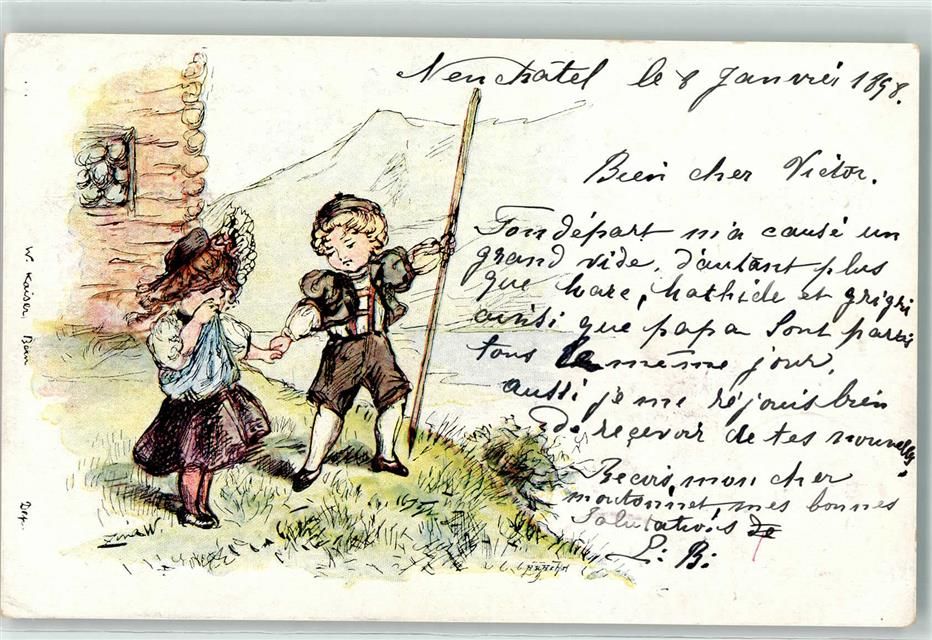 Neuchâtel le 8 Janvier 1898.
Bien cher Victor.
Ton départ m'a causé un
grand vide, d'autant plus
que Marc, Mathide et grigri
ainsi que papa sont partis
tous le même jour,
aussi je me réjouis bien
de reçevoir de tes nouvelles.
Reçois, mon cher
moutonnet, mes bonnes
Salutations de
L. B.
W. Kaiser, Bern
Dep.